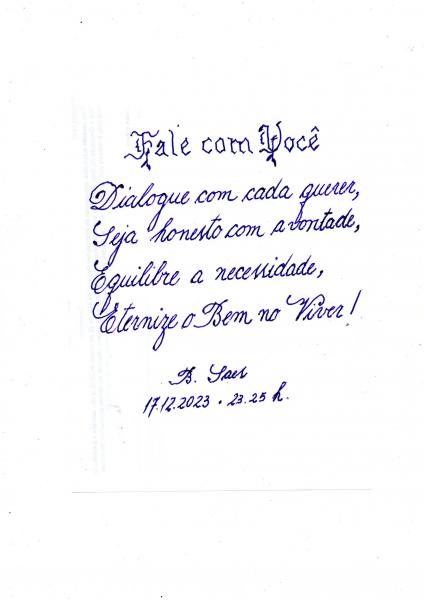 Fale com Você
Dialogue com cada querer,
Seja honesto com a vontade,
Equilibre a necessidade,
Eternize o Bem no Viver!
B. Saes
17.12.2023 . 23.25 h.